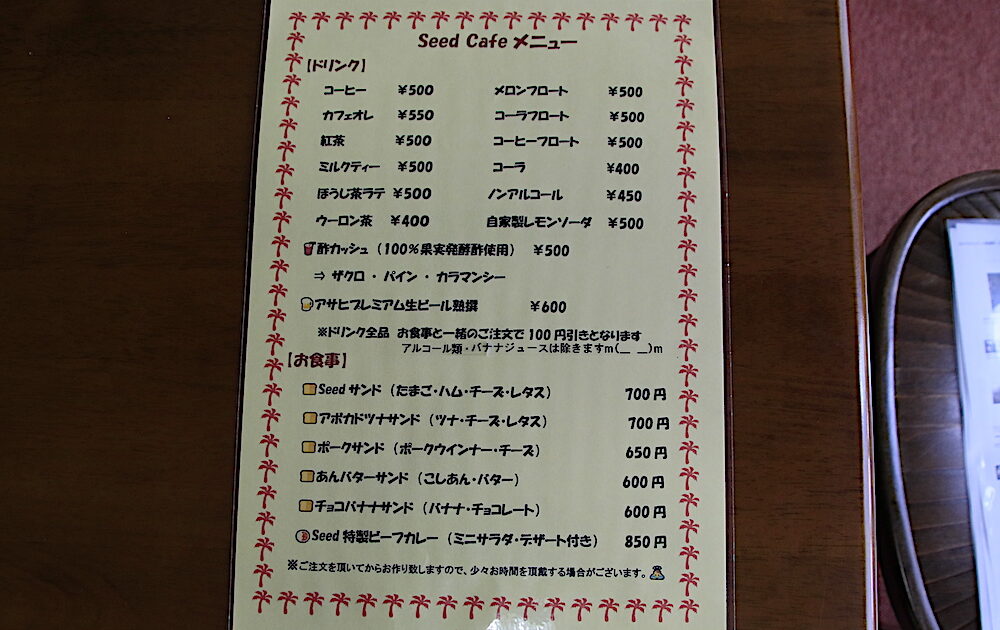 Seed Cafe メニュー
【ドリンク】
コーヒー ￥500 メロンフロート ￥500
カフェオレ ￥550 コーラフロート ￥500
紅茶 ￥500 コーヒーフロート ￥500
ミルクティー ￥500 コーラ ￥400
ほうじ茶ラテ ￥500 ノンアルコール ￥450
ウーロン茶 ￥400 自家製レモンソーダ ￥500
酢カッシュ（100％果実発酵酢使用） ￥500
⇒ ザクロ ・ パイン ・ カラマンシー
アサヒプレミアム生ビール熟撰 ￥600
※ドリンク全品 お食事と一緒のご注文で 100 円引きとなります
アルコール類・バナナジュースは除きますm(__ __)m
【お食事】
Seed サンド（たまご・ハム・チーズ・レタス） 700 円
アボカドツナサンド（ツナ・チーズ・レタス） 700 円
ポークサンド（ポークウインナー・チーズ） 650 円
あんバターサンド（こしあん・バター） 600 円
チョコバナナサンド（バナナ・チョコレート） 600 円
Seed 特製ビーフカレー（ミニサラダ・デザート付き） 850 円
※ご注文を頂いてからお作り致しますので、少々お時間を頂戴する場合がございます。